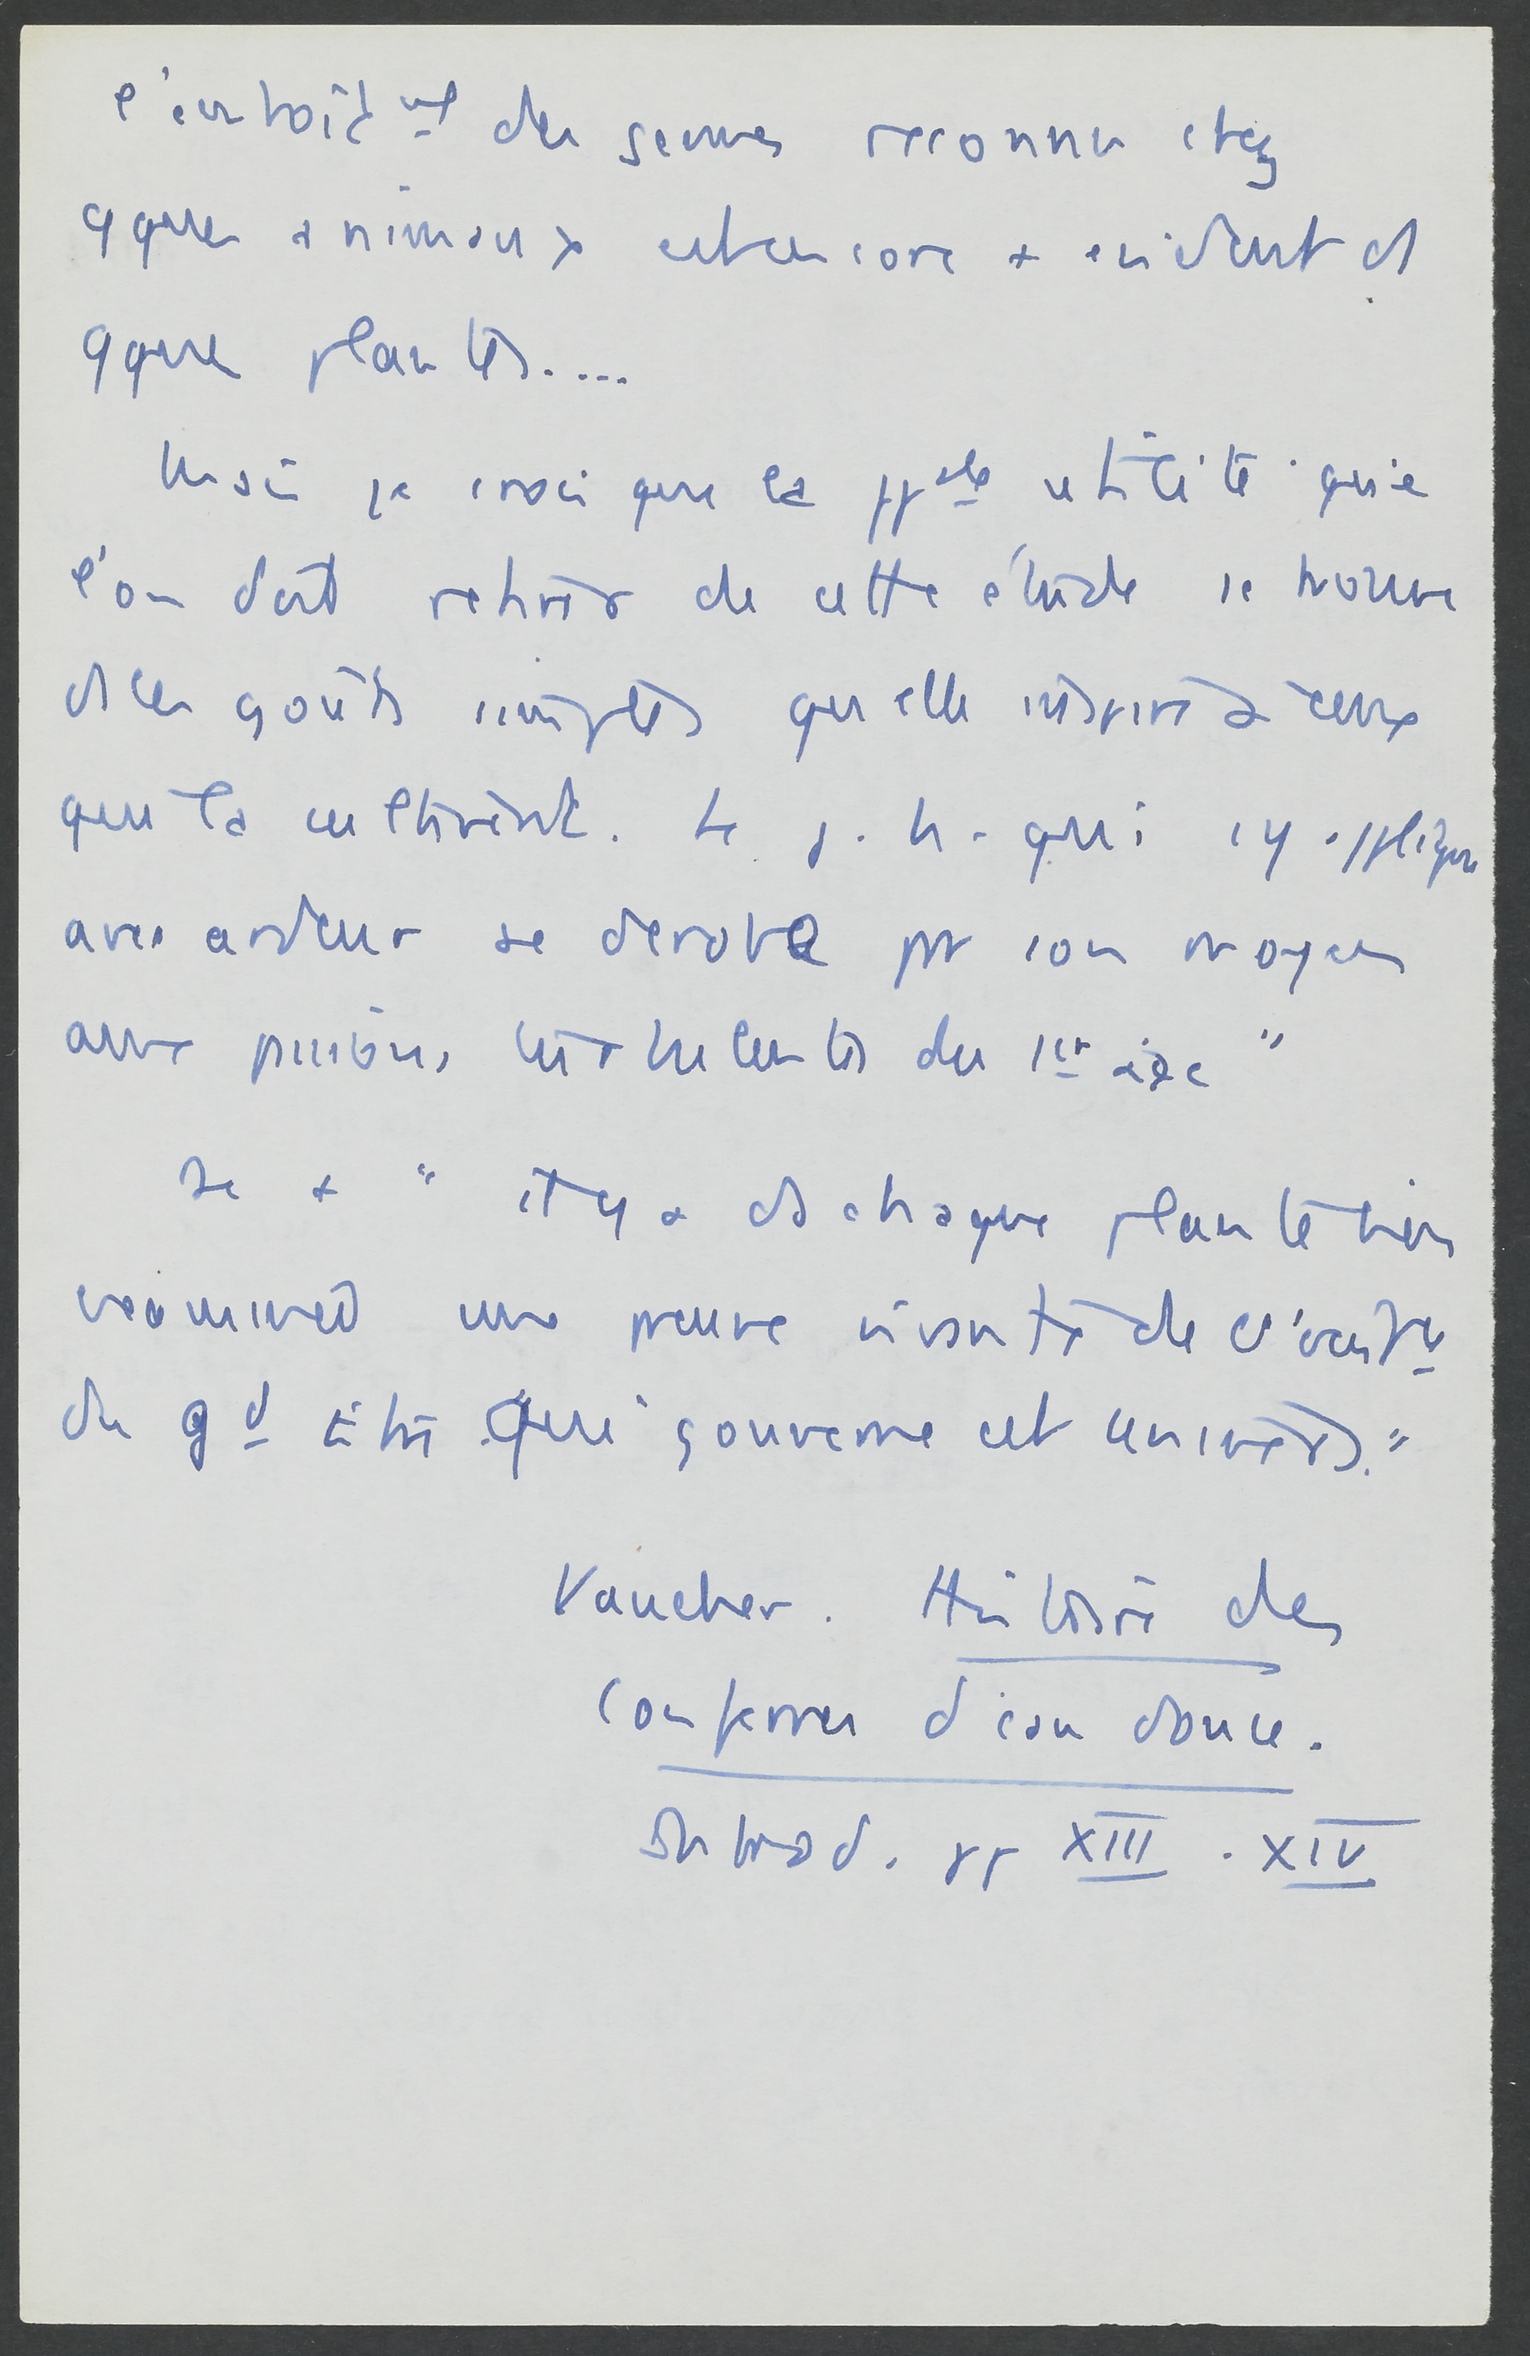 l'emboit^mt des germes reconnu chez
qques animaux est encore + évident ds
qques plantes....
Mais je crois que la pp^ale utilité que
l'on doit retirer de cette étude se trouve
ds les goûts simples qu'elle inspire à ceux
qui la cultivent. Le j. h. qui s'y applique
avec ardeur se dérobe pr son moyen
aux passions turbulentes du 1^er âge "
De + " il y a ds chaque plante bien
examinée une preuve vivante de l'
du g^d être qui gouverne cet univers."
Vaucher. Histoire des
Conferves d'eau douce.
Introd. pp XIII . XIV